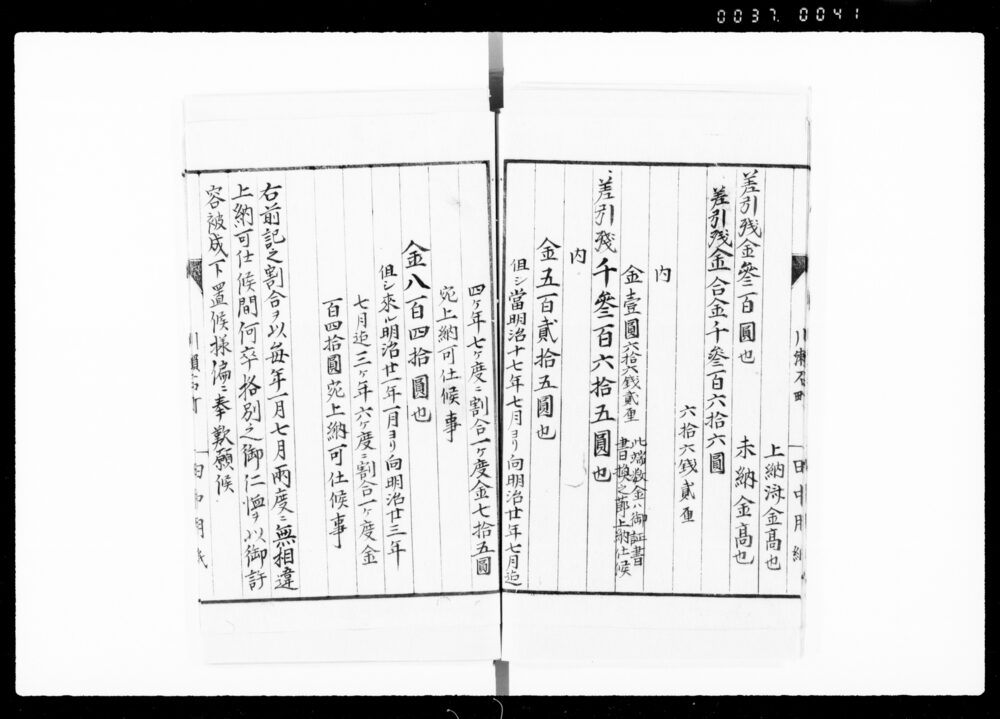 0037 0041
上納済金高也
差引残金参百圓也
未納金高也
差引残金合金千参百六拾六圓
六拾六銭貳厘
内
金壹圓六拾六銭貳厘
此端数金ハ御証書
書換之節上納仕候
差引残千参百六拾五圓也
内
金五百貳拾五圓也
但シ當明治十七年七月ヨリ向明治廿年七月迠
四ケ年七ケ度ニ割合一ケ度金七拾五圓
宛上納可仕候事
金八百四拾圓也
但シ來ル明治廿一年一月ヨリ向明治廿三年
七月迠三ケ年六ケ度ニ割合一ケ度金
百四拾圓宛上納可仕候事
右前記之割合ヲ以毎年一月七月兩度ニ無相違
上納可仕候間何卒格別之御仁恤ヲ以御許
容被成下置候様偏ニ奉歎願候